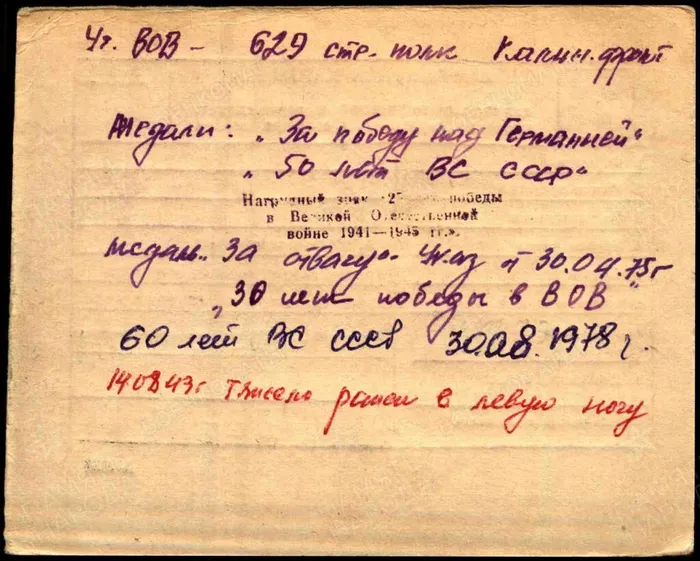 Уч. ВОВ - 629 стр. полк Калин. фронт
Медали: „За победу над Германией"
„50 лет ВС СССР"
Нагрудный знак «25 лет победы
в Великой Отечественной
войне 1941—1945 гг.».
медаль „За отвагу" Указ от 30.04.75г
„30 лет победы в ВОВ"
60 лет ВС СССР 30.08.1978 г.
14.08.43г тяжело ранен в левую ногу